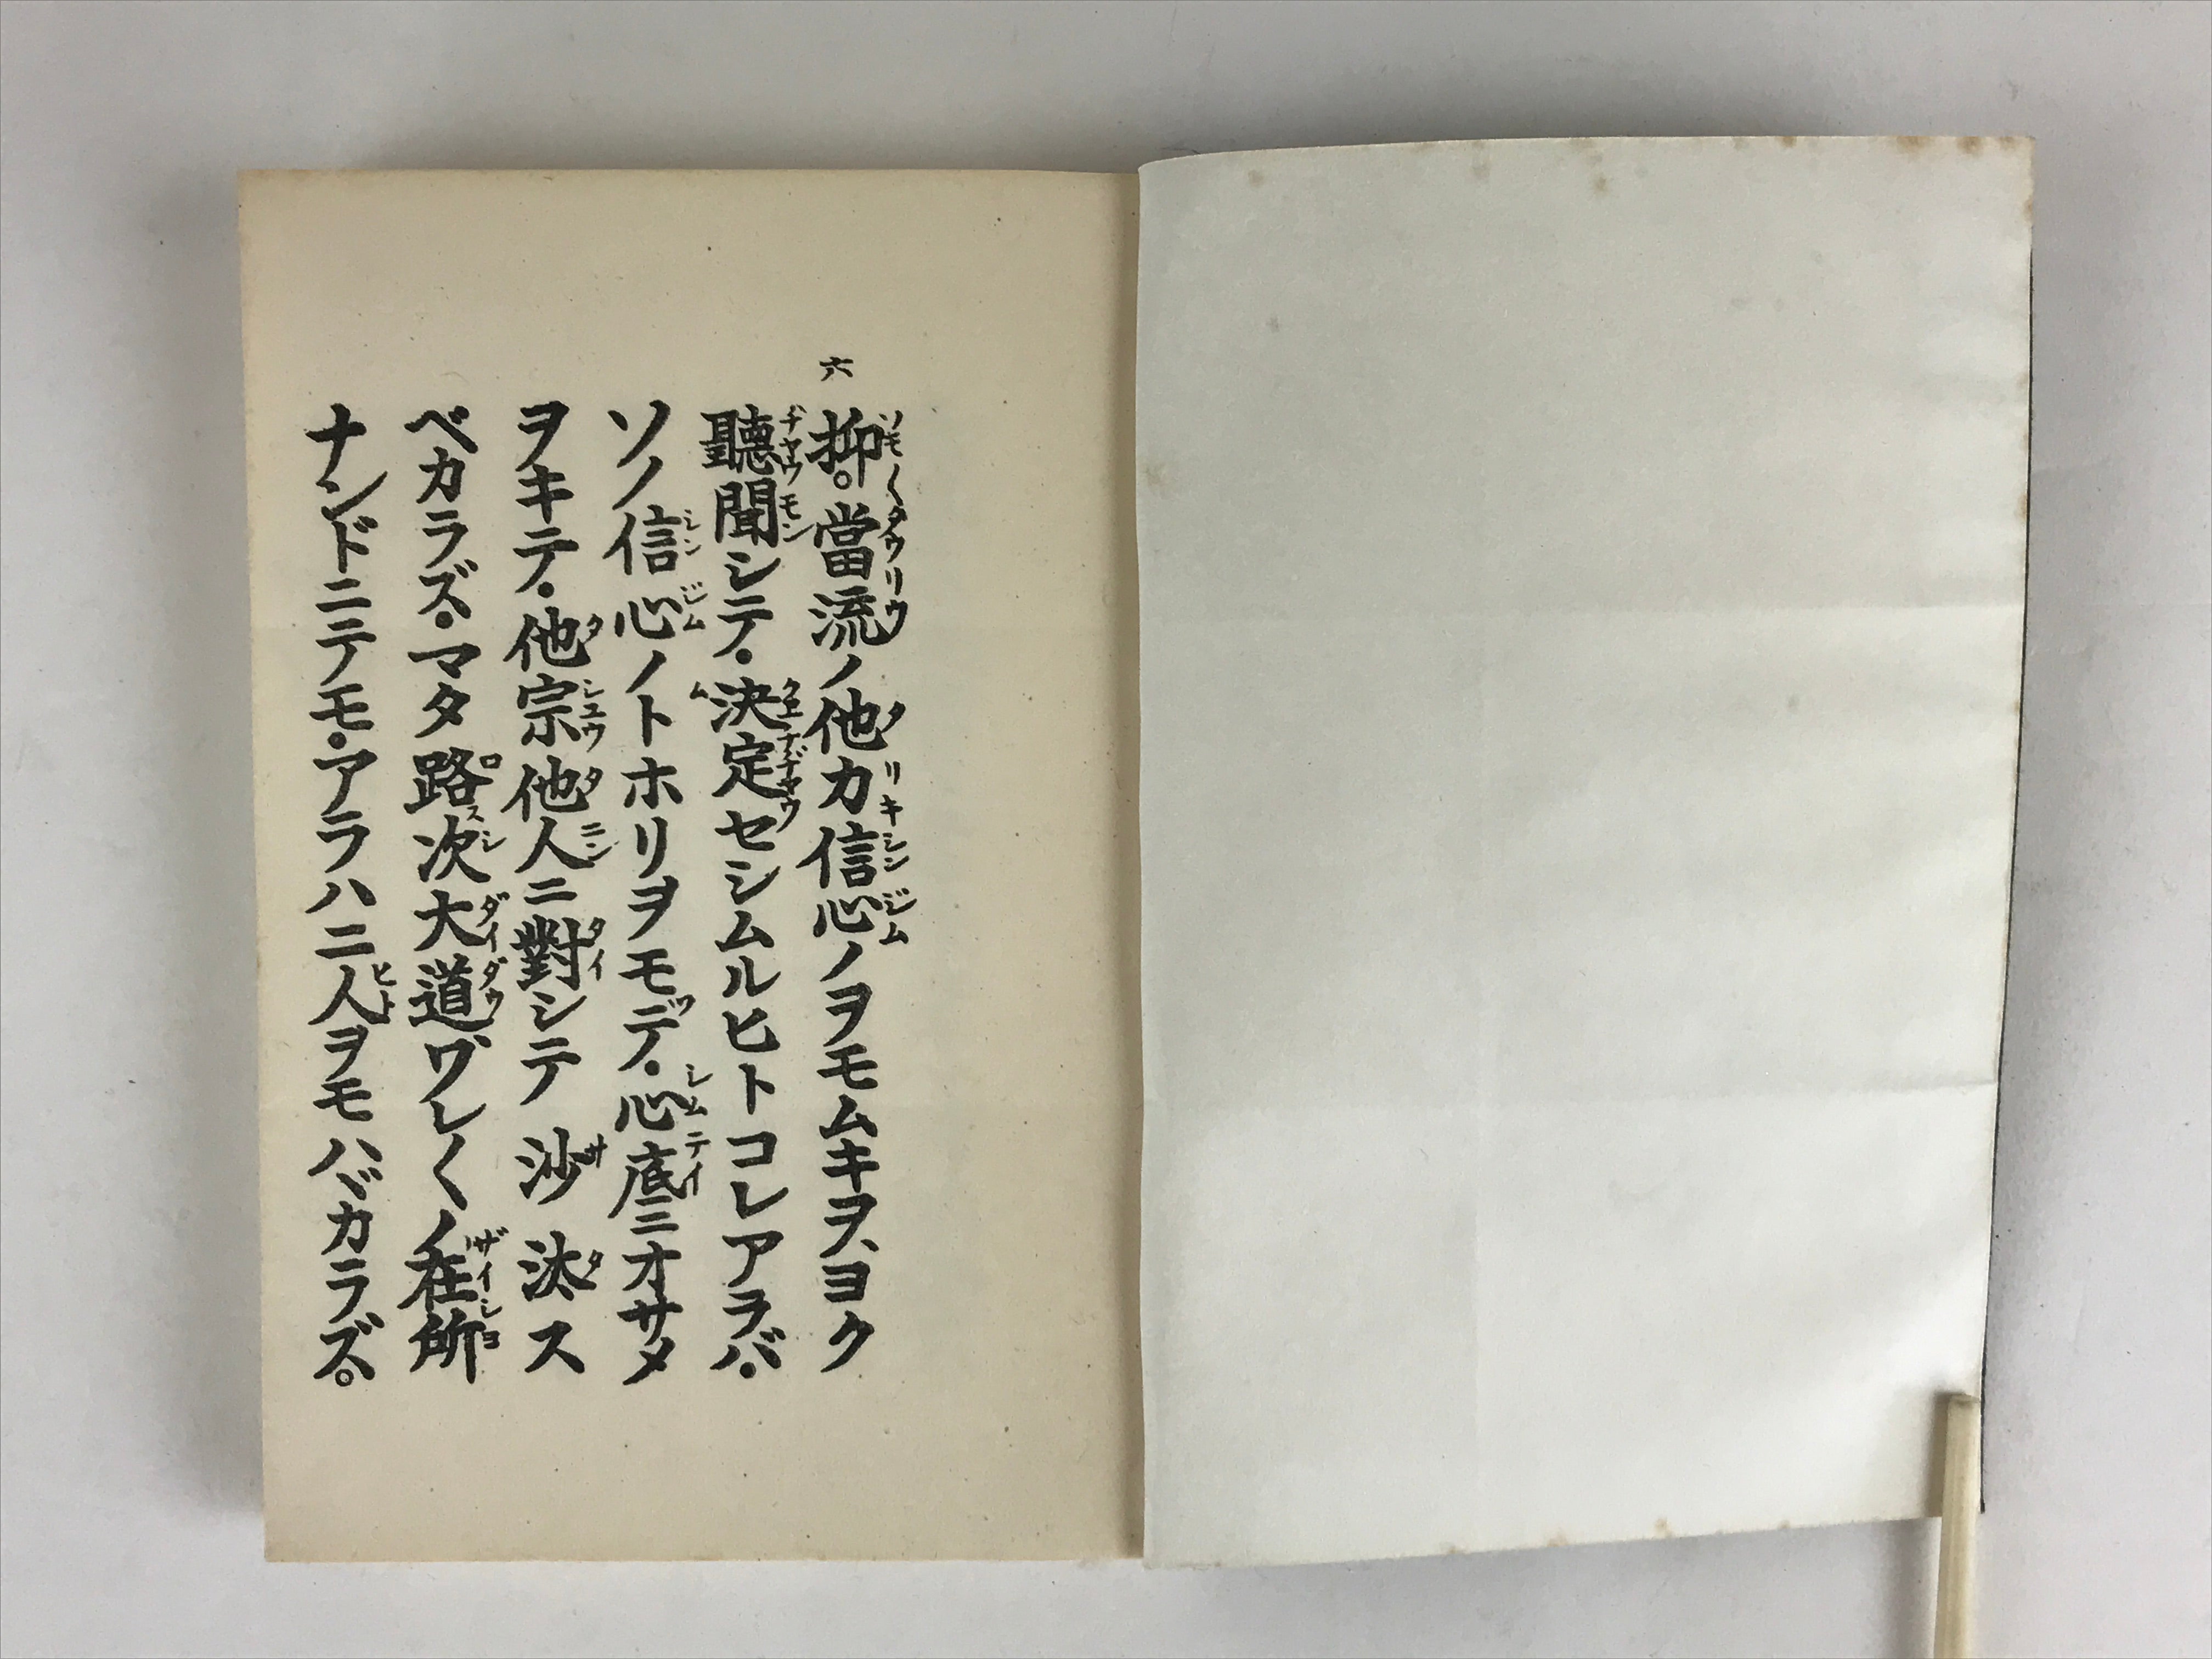 六
抑。當流ノ他力信心ノヲモムキヲ、ヨク
聽聞シテ・決定セシムルヒトコレアラバ・
ソノ信心ノトホリヲモテ・心底ニオサメ
ヲキテ・他宗他人ニ對シテ沙汰ス
ベカラズ・マタ路次大道ワレ〳〵ノ在所
ナンドニテモ・アラハニ人ヲモハバカラズ。